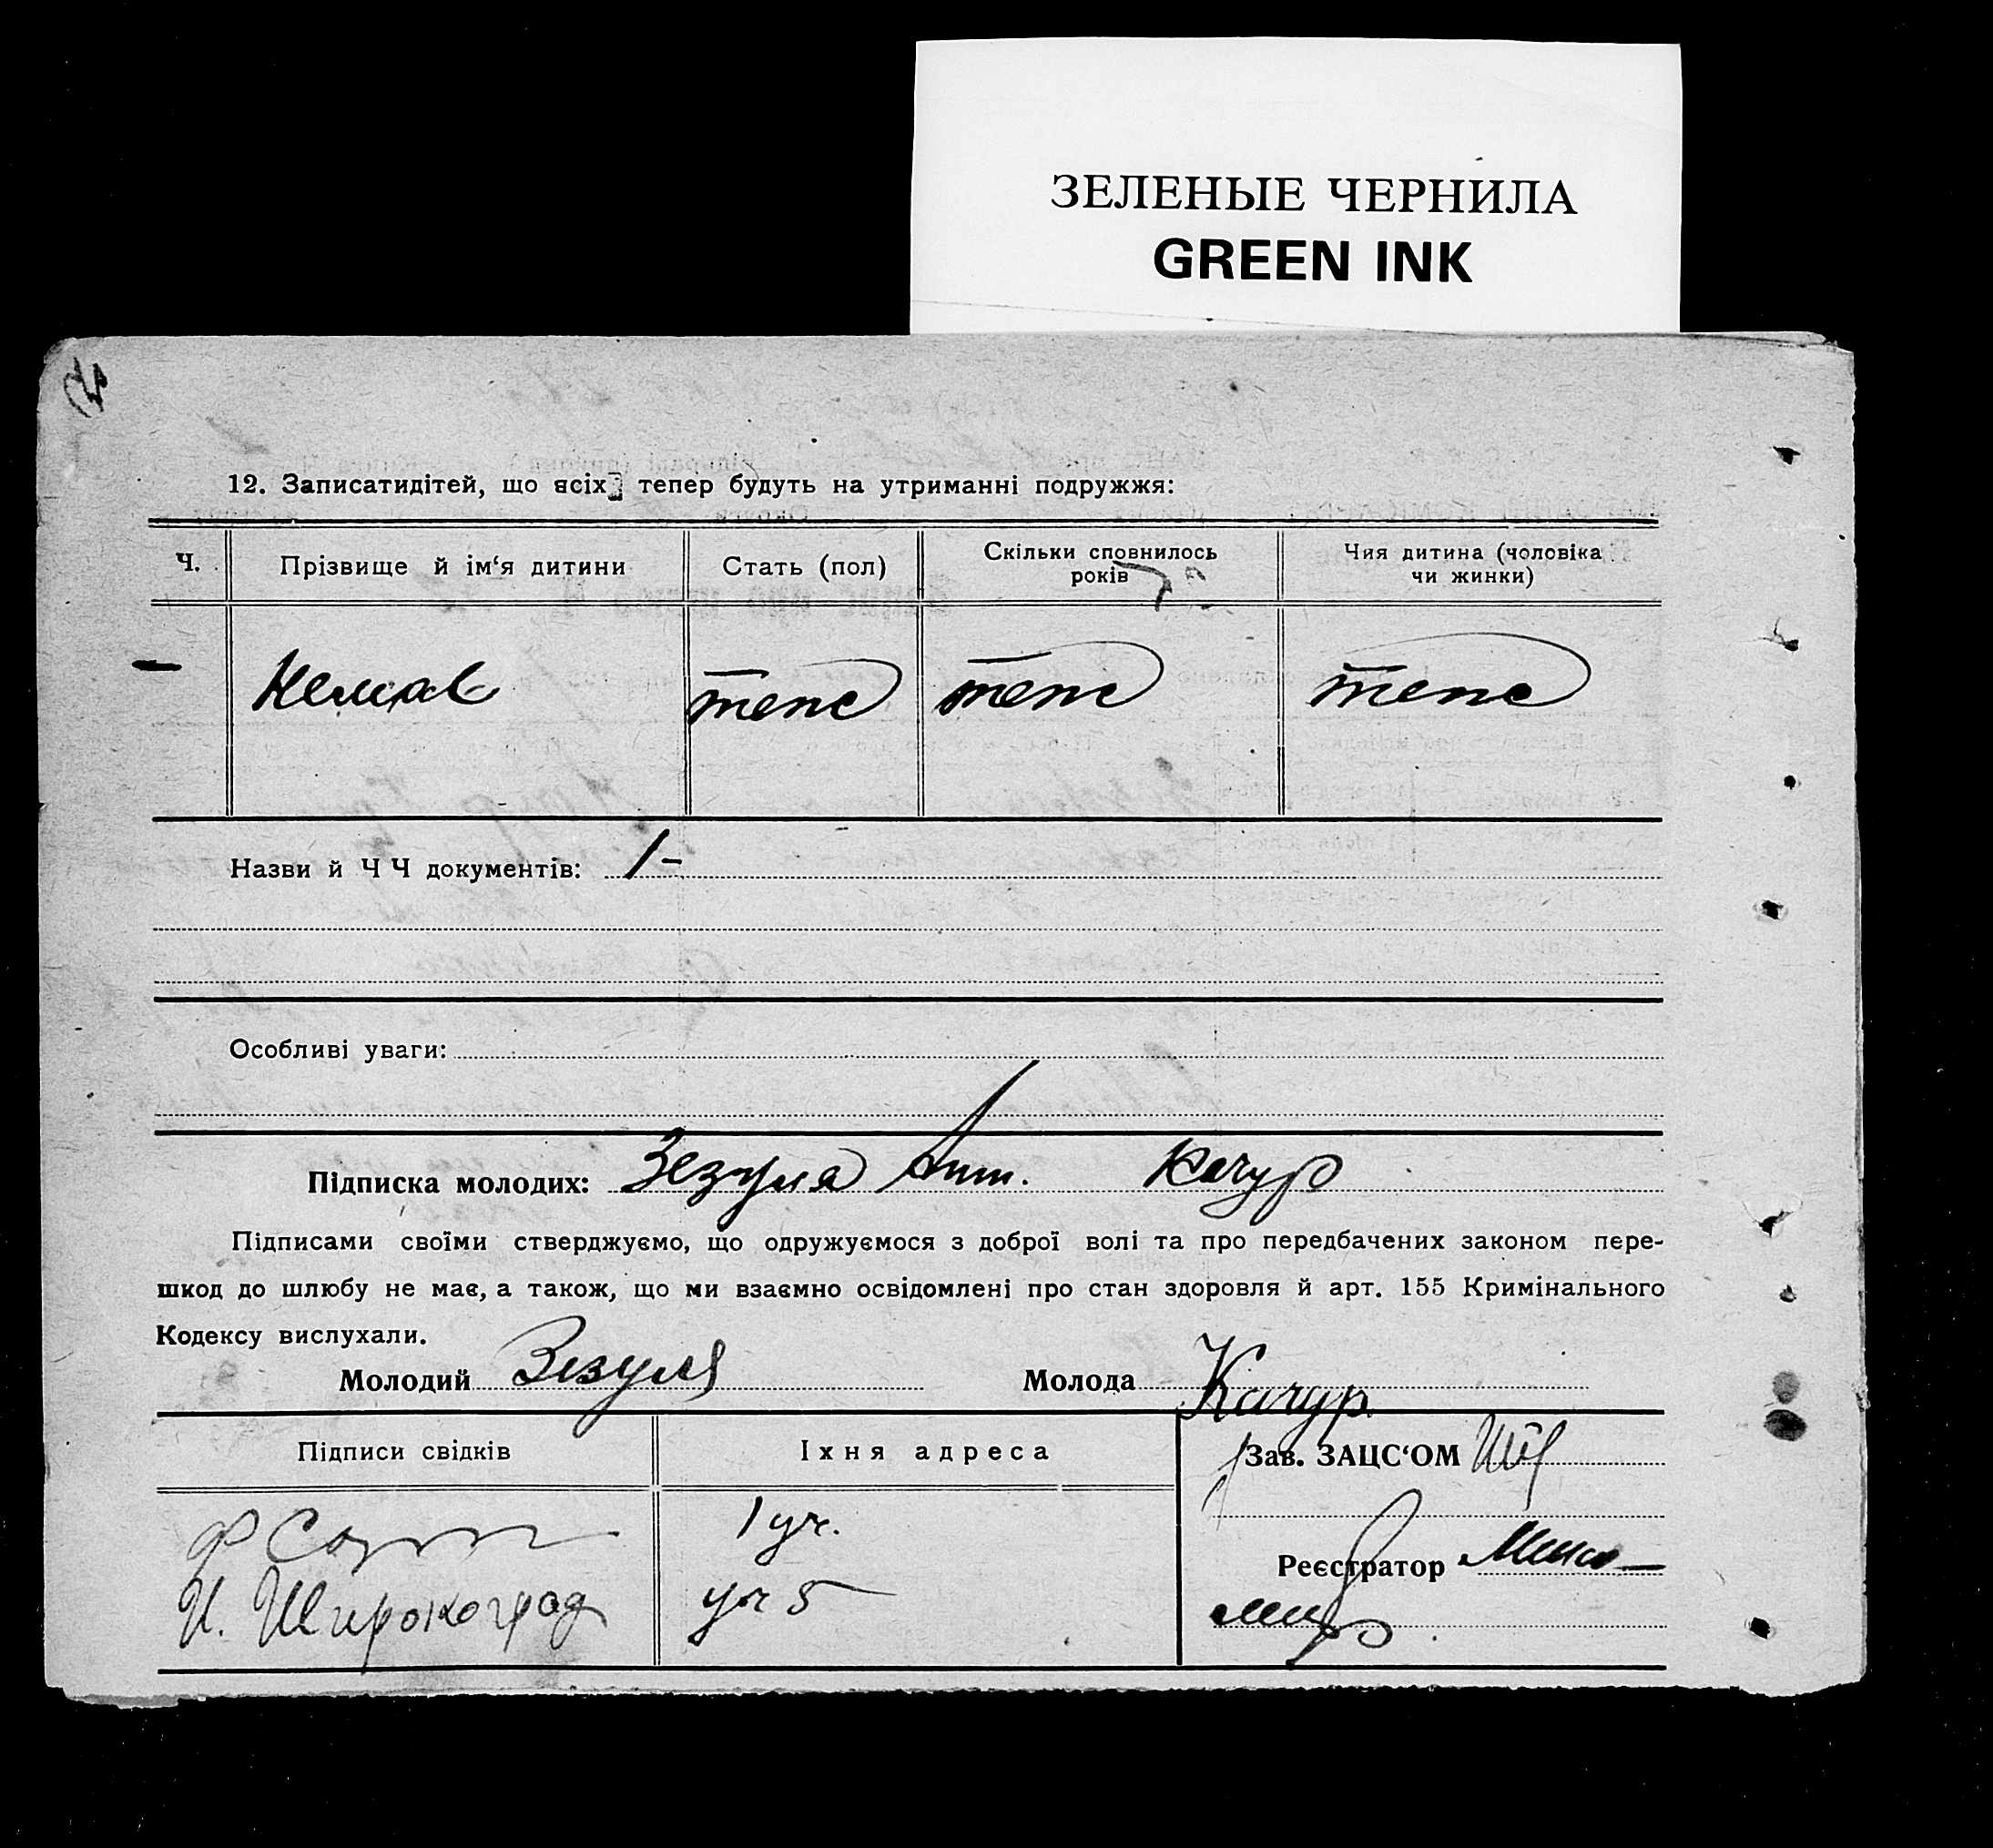 ЗЕЛЕНЫЕ ЧЕРНИЛА
GREEN INK
12. Записатидітей, що всіх тепер будуть на утриманні подружжя:
Ч. Прізвище й ім‘я дитини Стать (пол) Скільки сповнилось років Чия дитина (чоловіка чи жинки)
— Немає
Назви й Ч Ч документів: /-
Особливі уваги:
Підписка молодих: Зезуля Ант. Качур
Підписами своїми стверджуємо, що одружуємося з доброї волі та про передбачених законом пере-
шкод до шлюбу не має, а також, що ми взаємно освідомлені про стан здоровля й арт. 155 Кримінального
Кодексу вислухали.
Молодий Зезуля Молода Качур
Підписи свідків Їхня адреса Зав. ЗАЦС‘ОМ
1 уч.
Реєстратор
И. Широкоград уч 5